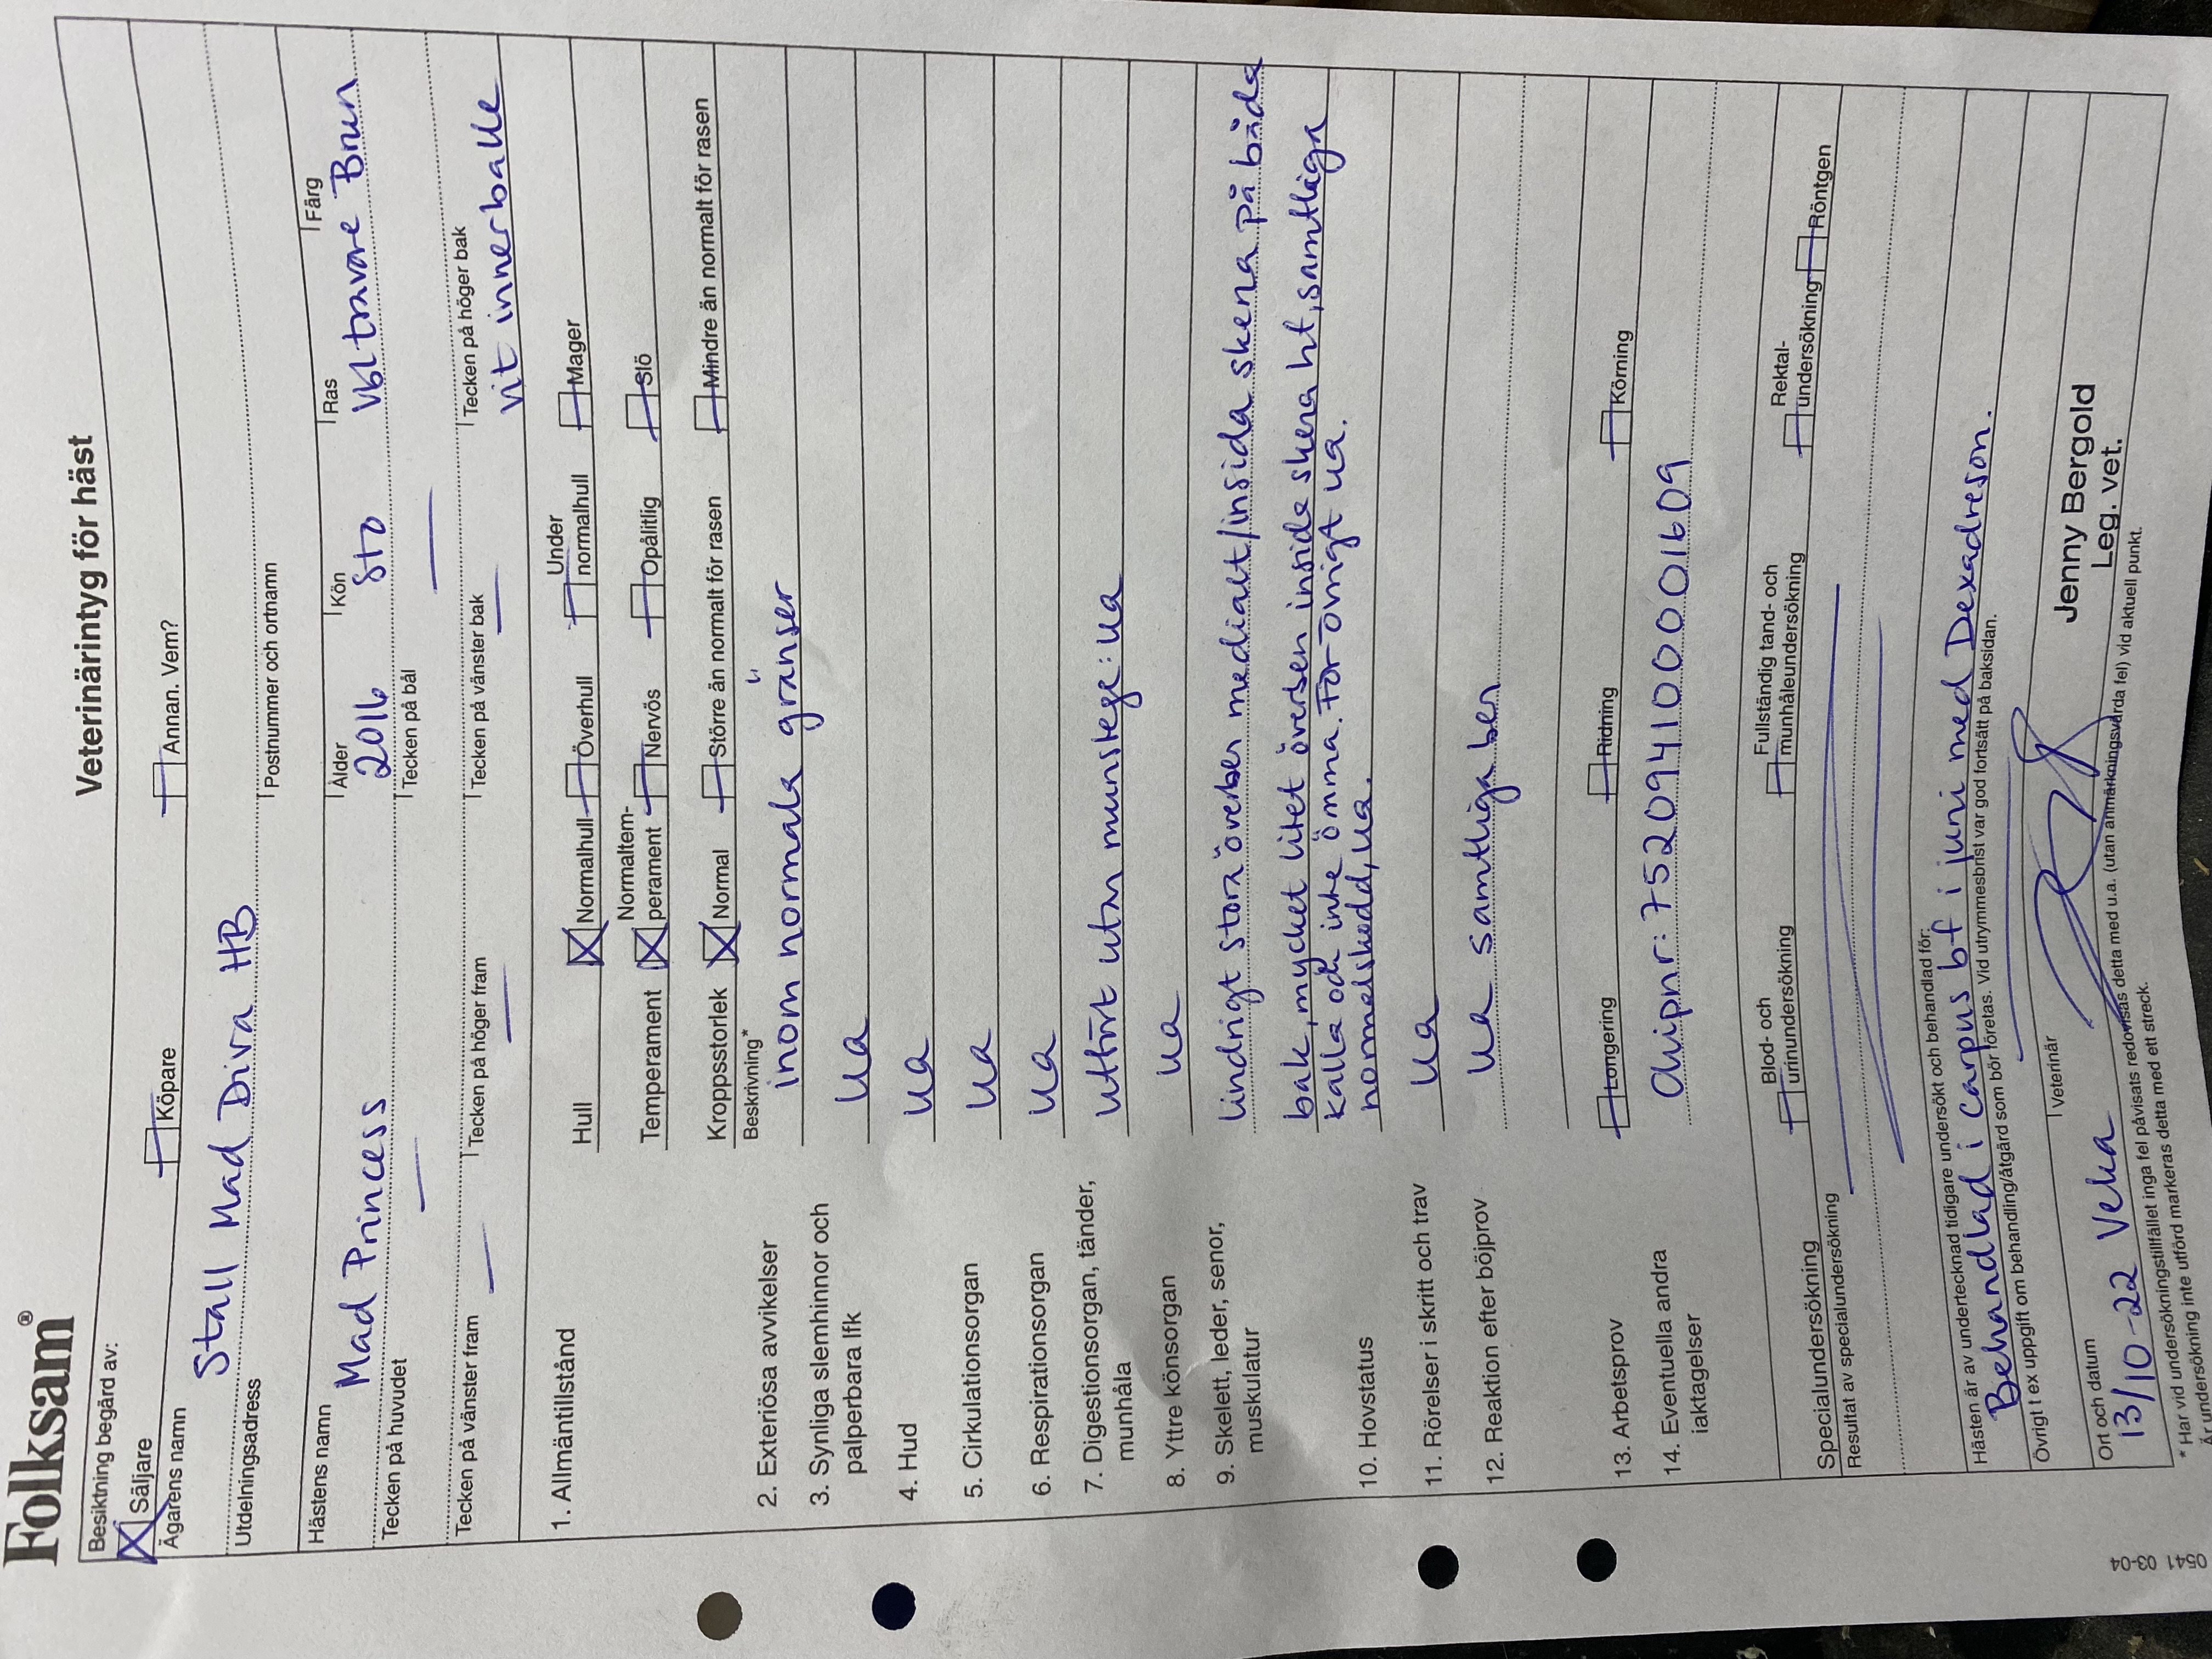 Folksam®
Veterinärintyg för häst
Besiktning begärd av:
Säljare Köpare Annan. Vem?
Ägarens namn
Stall Mad Diva HB
Utdelningsadress Postnummer och ortnamn
Hästens namn Ålder Kön Ras Färg
Mad Princess 2016 Sto Vbl travare Brun
Tecken på huvudet Tecken på bål
Tecken på vänster fram Tecken på höger fram Tecken på vänster bak Tecken på höger bak
vit innerballe
1. Allmäntillstånd Hull Normalhull Överhull Under normalhull Mager
Temperament Normaltem-perament Nervös Opålitlig Slö
Kroppsstorlek Normal Större än normalt för rasen Mindre än normalt för rasen
Beskrivning*
2. Exteriösa avvikelser inom normala gränser
3. Synliga slemhinnor och ua
palperbara lfk
4. Hud ua
5. Cirkulationsorgan ua
6. Respirationsorgan ua
7. Digestionsorgan, tänder, utfört utan munstege: ua
munhåla
8. Yttre könsorgan ua
9. Skelett, leder, senor, lindrigt stora överben medialt/insida skena på båda
muskulatur bak, mycket litet överben insida skena ht, samtliga
kalla och inte ömma. För övrigt ua.
10. Hovstatus normalskodd, ua.
11. Rörelser i skritt och trav ua
12. Reaktion efter böjprov ua samtliga ben
13. Arbetsprov Longering Ridning Körning
14. Eventuella andra Chipnr: 752094100001609
iaktagelser
Specialundersökning Blod- och urinundersökning Fullständig tand- och munhåleundersökning Rektal-undersökning Röntgen
Resultat av specialundersökning
Hästen är av undertecknad tidigare undersökt och behandlad för:
Behandlad i carpus bf i juni med Dexadreson.
Övrigt t ex uppgift om behandling/åtgärd som bör företas. Vid utrymmesbrist var god fortsätt på baksidan.
Ort och datum Veterinär
13/10-22 Jenny Bergold
Leg. vet.
* Har vid undersökningstillfället inga fel påvisats redovisas detta med u.a. (utan anmärkningsvärda fel) vid aktuell punkt.
Är undersökning inte utförd markeras detta med ett streck.
0541 03-04